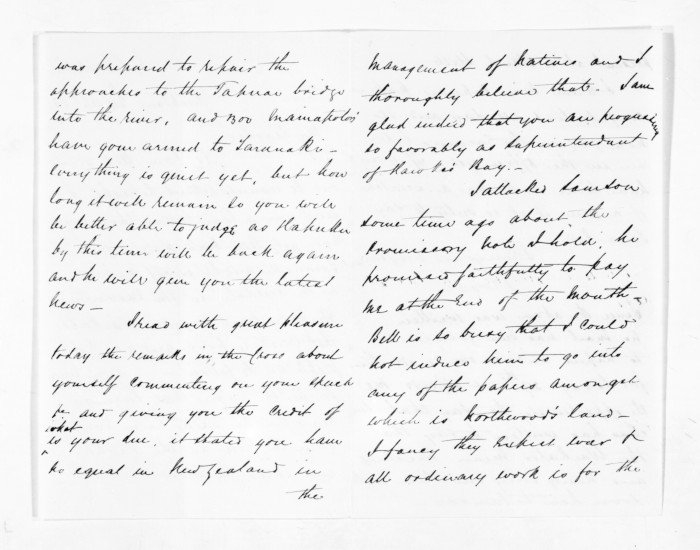 was prepared to repair the
approaches to the Tapuae bridge
into the river, and 300 Maniapotos
have gone armed to Taranaki -
Everything is quiet yet, but how
long it will remain so you will
be better able to judge as Hapuku
by this time will be back again
and he will give you the latest
news -
I read with great pleasure
today the remarks in the Cross about
yourself commenting on your speech
&c and giving you the credit of
what
is your due, it stated you have
no equal in New Zealand in
the
management of Natives and I
thoroughly believe that. I am
glad indeed that you are progressing
so favorably as Superintendent
of Hawkes Bay. -
I attacked Samson
some time ago about the
Promissory note I hold, he
promised faithfully to pay
me at the End of the Month -
Bell is so busy that I could
not induce him to go into
any of the papers amongst
which is Northwood's land -
I fancy they Expect war &
all ordinary work is for the